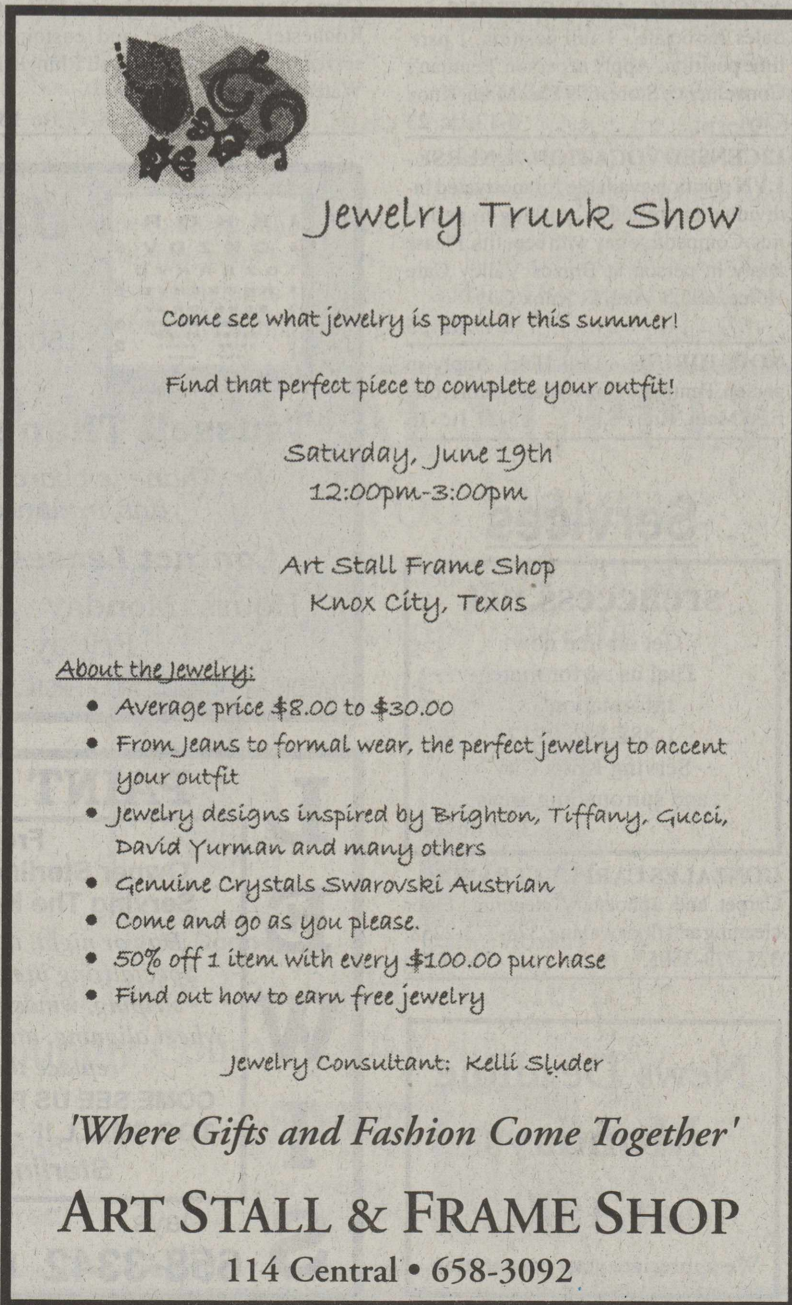 Jewelry Trunk Show
Come see what jewelry is popular this summer!
Find that perfect piece to complete your outfit!
Saturday, June 19th
12:00pm-3:00pm
Art Stall Frame Shop
Knox City, Texas
About the Jewelry:
• Average price $8.00 to $30.00
• From Jeans to formal wear, the perfect jewelry to accent
your outfit
• Jewelry designs inspired by Brighton, Tiffany, Gucci,
David Yurman and many others
• Genuine Crystals Swarovski Austrian
• Come and go as you please.
• 50% off 1 item with every $100.00 purchase
• Find out how to earn free jewelry
Jewelry Consultant: Kelli Sluder
'Where Gifts and Fashion Come Together'
ART STALL & FRAME SHOP
114 Central • 658-3092